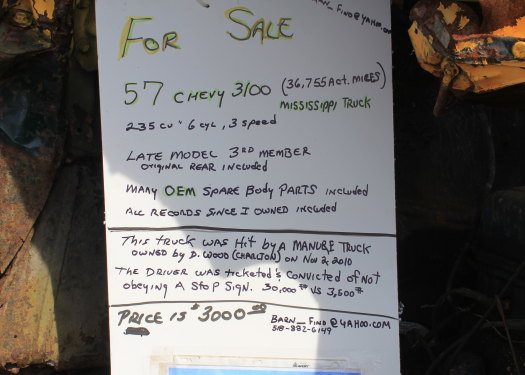 FIND@YAHOO.COM
FOR SALE
57 CHEVY 3100 (36,755 ACT. MILES)
MISSISSIPPI TRUCK
235 CU " 6 CYL, 3 SPEED
LATE MODEL 3RD MEMBER
ORIGINAL REAR INCLUDED
MANY OEM SPARE BODY PARTS INCLUDED
ALL RECORDS SINCE I OWNED INCLUDED
THIS TRUCK WAS HIT BY A MANURE TRUCK
OWNED BY D. WOOD (CHARLTON) ON NOV 2, 2010
THE DRIVER WAS TICKETED & CONVICTED OF NOT
OBEYING A STOP SIGN. 30,000 00 VS 3,500 00
PRICE IS $3000 00
BARN_FIND@YAHOO.COM
518-882-6149